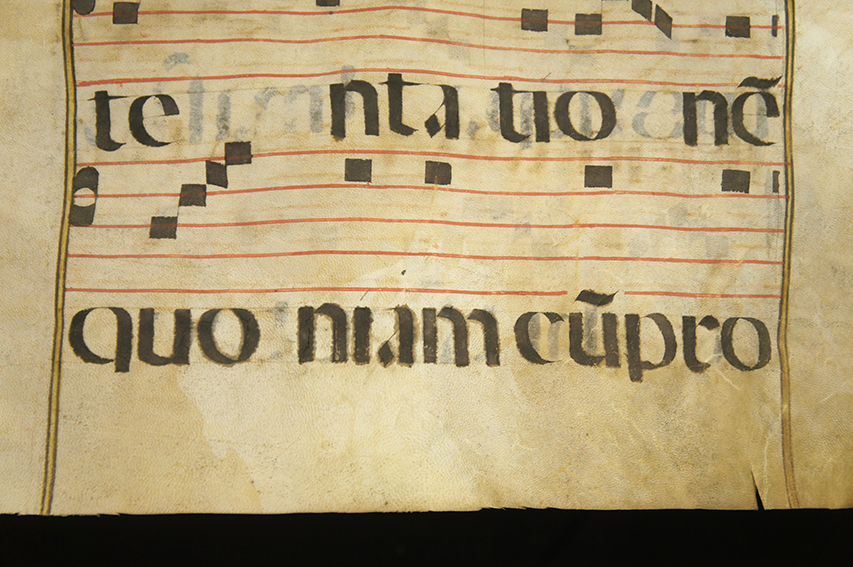 te nta tio nẽ
quo niam cũ pro